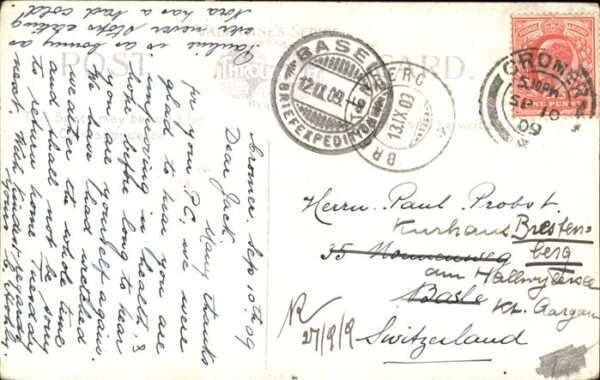 Cromer, Sep 10th 09
Dear Jack,
Many thanks
for your P.C, we were
glad to hear you are
improving in health, &
hope before long to hear
you are yourself again.
We have had wretched
weather the whole time
and shall not be sorry
to return home Tuesday
next. With kindest regards,
yours
Pauline is as bonny as
ever, never stops eating
Nora has a bad cold.
POST CARD.
BASEL
12.IX.09.
BRIEFEXPEDITION
BERG
13.IX.09
BR
CROMER
5.30PM
SP 10
09
ONE PENNY
Herrn Paul Probst
Kurhaus Bresten-
berg
35 Nonnenweg
am Hallwylersee
Basle Kt. Aargau
Switzerland
R
27/9/9